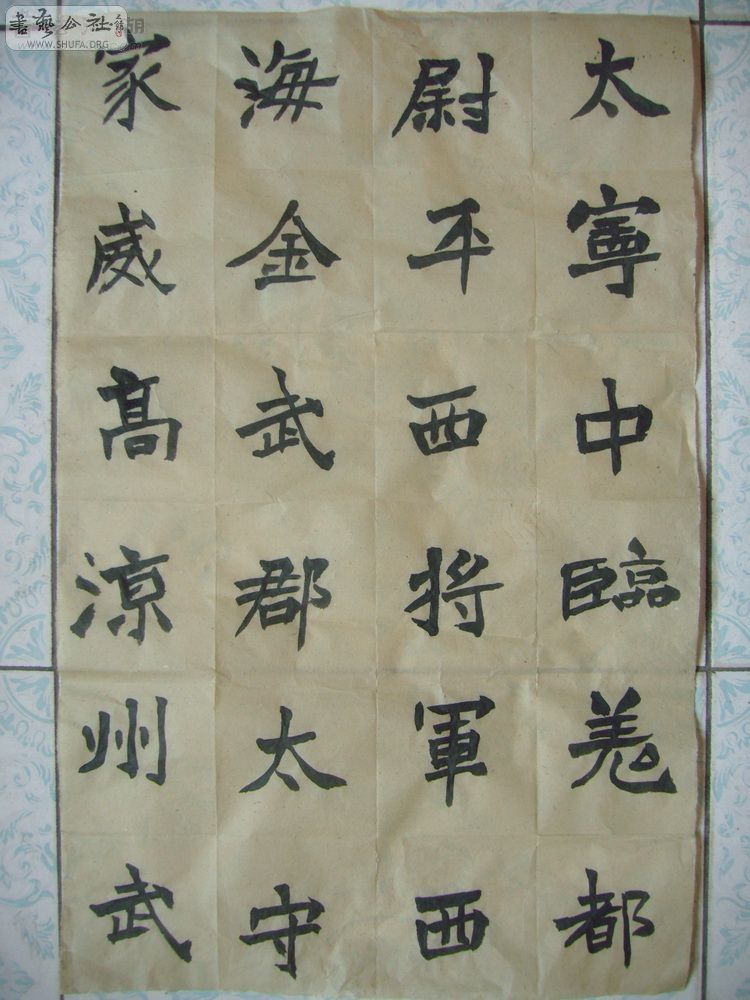 書藝公社
WWW.SHUFA.ORG
太寧中臨羌都
尉平西将軍西
海金武郡太守
家威高涼州武